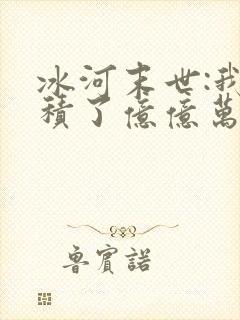 冰河末世:我
積了億億萬
魯賓諾